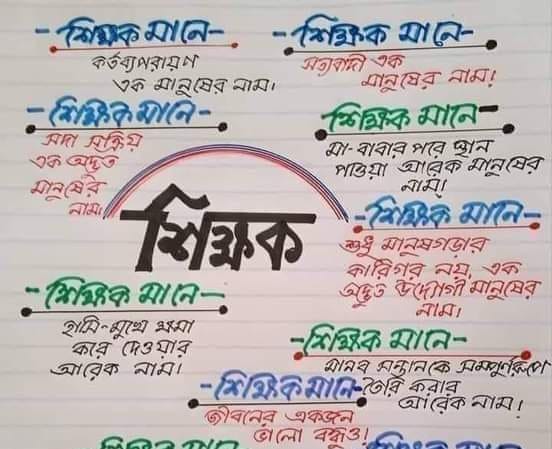 - শিক্ষক মানে -
কর্তব্যপরায়ণ
এক মানুষের নাম।
- শিক্ষক মানে -
সত্যবাদী এক
মানুষের নাম।
- শিক্ষক মানে -
সদা সক্রিয়
এক অদ্ভুত
মানুষের
নাম।
শিক্ষক মানে -
মা-বাবার পরে স্থান
পাওয়া আরেক মানুষের
নাম।
শিক্ষক
- শিক্ষক মানে -
শুধু মানুষগড়ার
কারিগর নয়, এক
অদ্ভুত উদ্যোগী মানুষের
নাম।
- শিক্ষক মানে -
হাসি-মুখে ক্ষমা
করে দেওয়ার
আরেক নাম।
- শিক্ষক মানে -
মানব সন্তানকে সম্পূর্ণরূপে
তৈরি করার
আরেক নাম।
- শিক্ষক মানে -
জীবনের একজন
ভালো বন্ধুও!
শিক্ষক মানে
শিক্ষক মানে